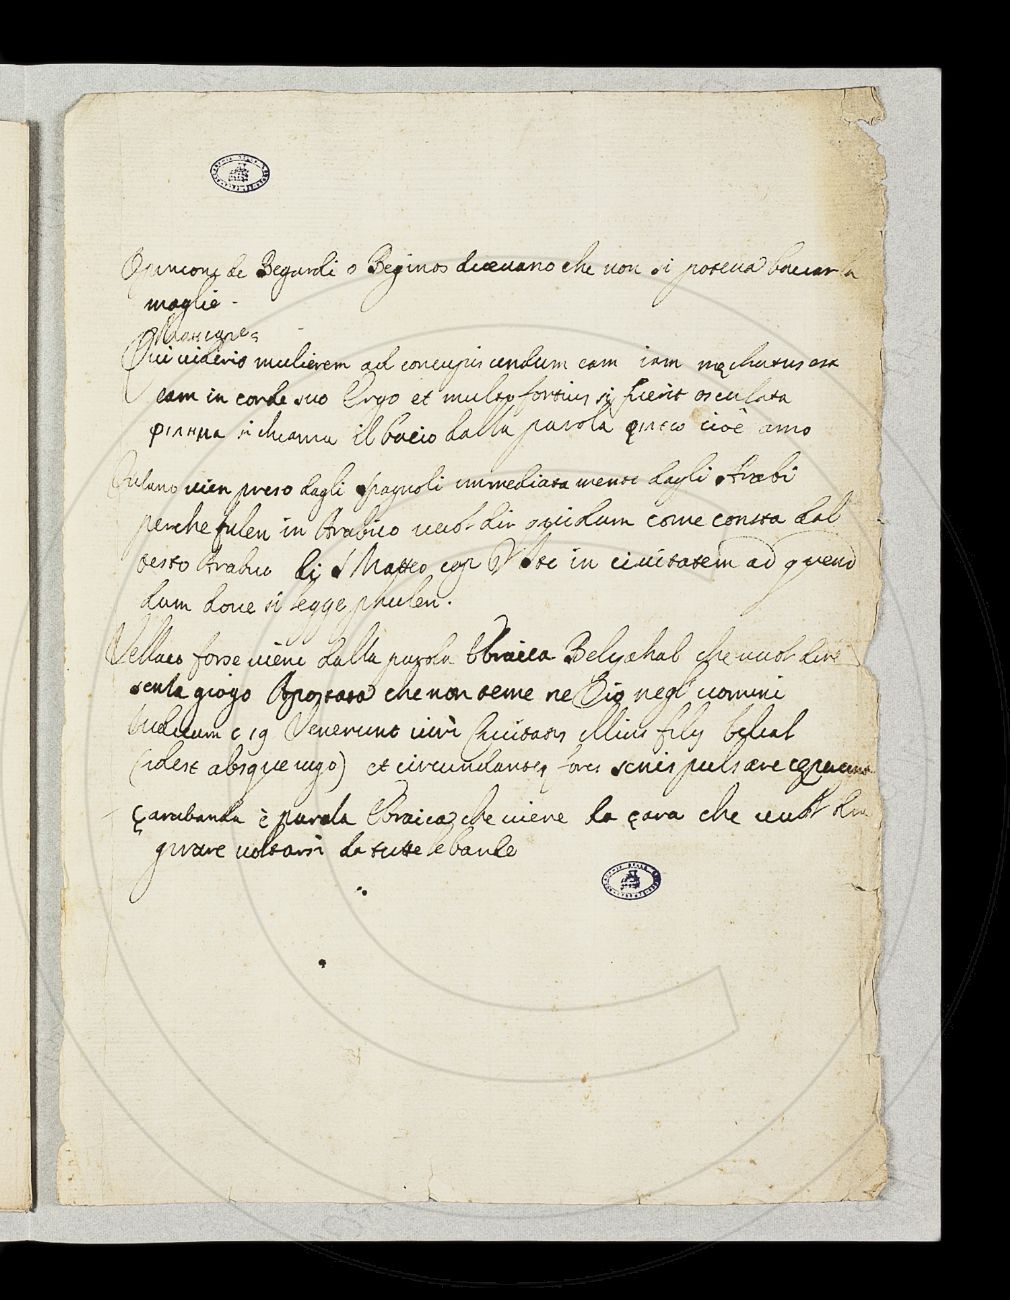 Opinione de Begardi o Beginos diceuano che non si poteua baciar la
moglie.
Qui uiderit mulierem ad concupiscendum eam iam mechatus est
eam in corde suo Ergo et multo fortius si fuerit osculata
φιλημα si chiama il bacio dalla parola φιλεω cioè amo
Fulano uien preso dagli Spagnoli immediatamente dagli Arabi
perche fulen in Arabico uuol dir quidam come consta dal
testo Arabico di S Matteo cap Ite in ciuitatem ad quend
dam doue si legge phulen.
Vellaco forse uiene dalla parola Ebraica Belyahal che uuol dire
senza giogo Apostata che non teme ne Dio negl uomini
Iudicum c 19 Venerunt uiri Ciuitatis illius filij belial
(idest absque iugo) et circumdantes fores senis pulsare ceperunt
çarabanda è parola Ebraica che uiene da çara che uuol dire
girare uoltarsi da tutte le bande